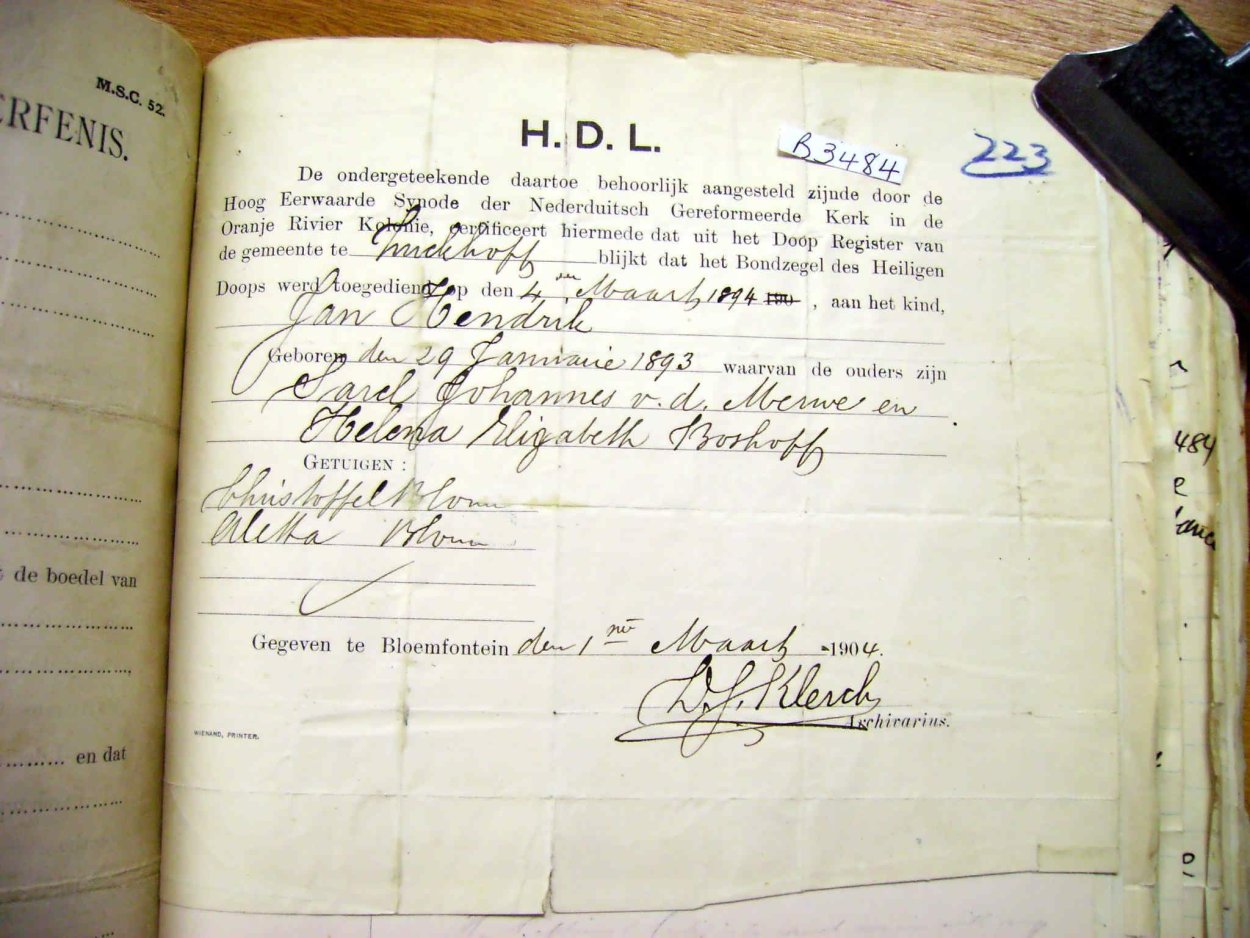 M.S.C. 52.
ERFENIS.
de boedel van
en dat
H. D. L.
B3484
223
De ondergeteekende daartoe behoorlijk aangesteld zijnde door de
Hoog Eerwaarde Synode der Nederduitsch Gereformeerde Kerk in de
Oranje Rivier Kolonie, certificeert hiermede dat uit het Doop Register van
de gemeente te Luckhoff blijkt dat het Bondzegel des Heiligen
Doops werd toegediend op den 4en Maart 1894 190 , aan het kind,
Jan Hendrik
Geboren den 29 Januarie 1893 waarvan de ouders zijn
Sarel Johannes v. d. Merwe en
Helena Elizabeth Boshoff
GETUIGEN :
Christoffel Blom
Aletta Blom
Gegeven te Bloemfontein den 1ste Maart 1904.
Archivarius.
WIENAND, PRINTER.
484